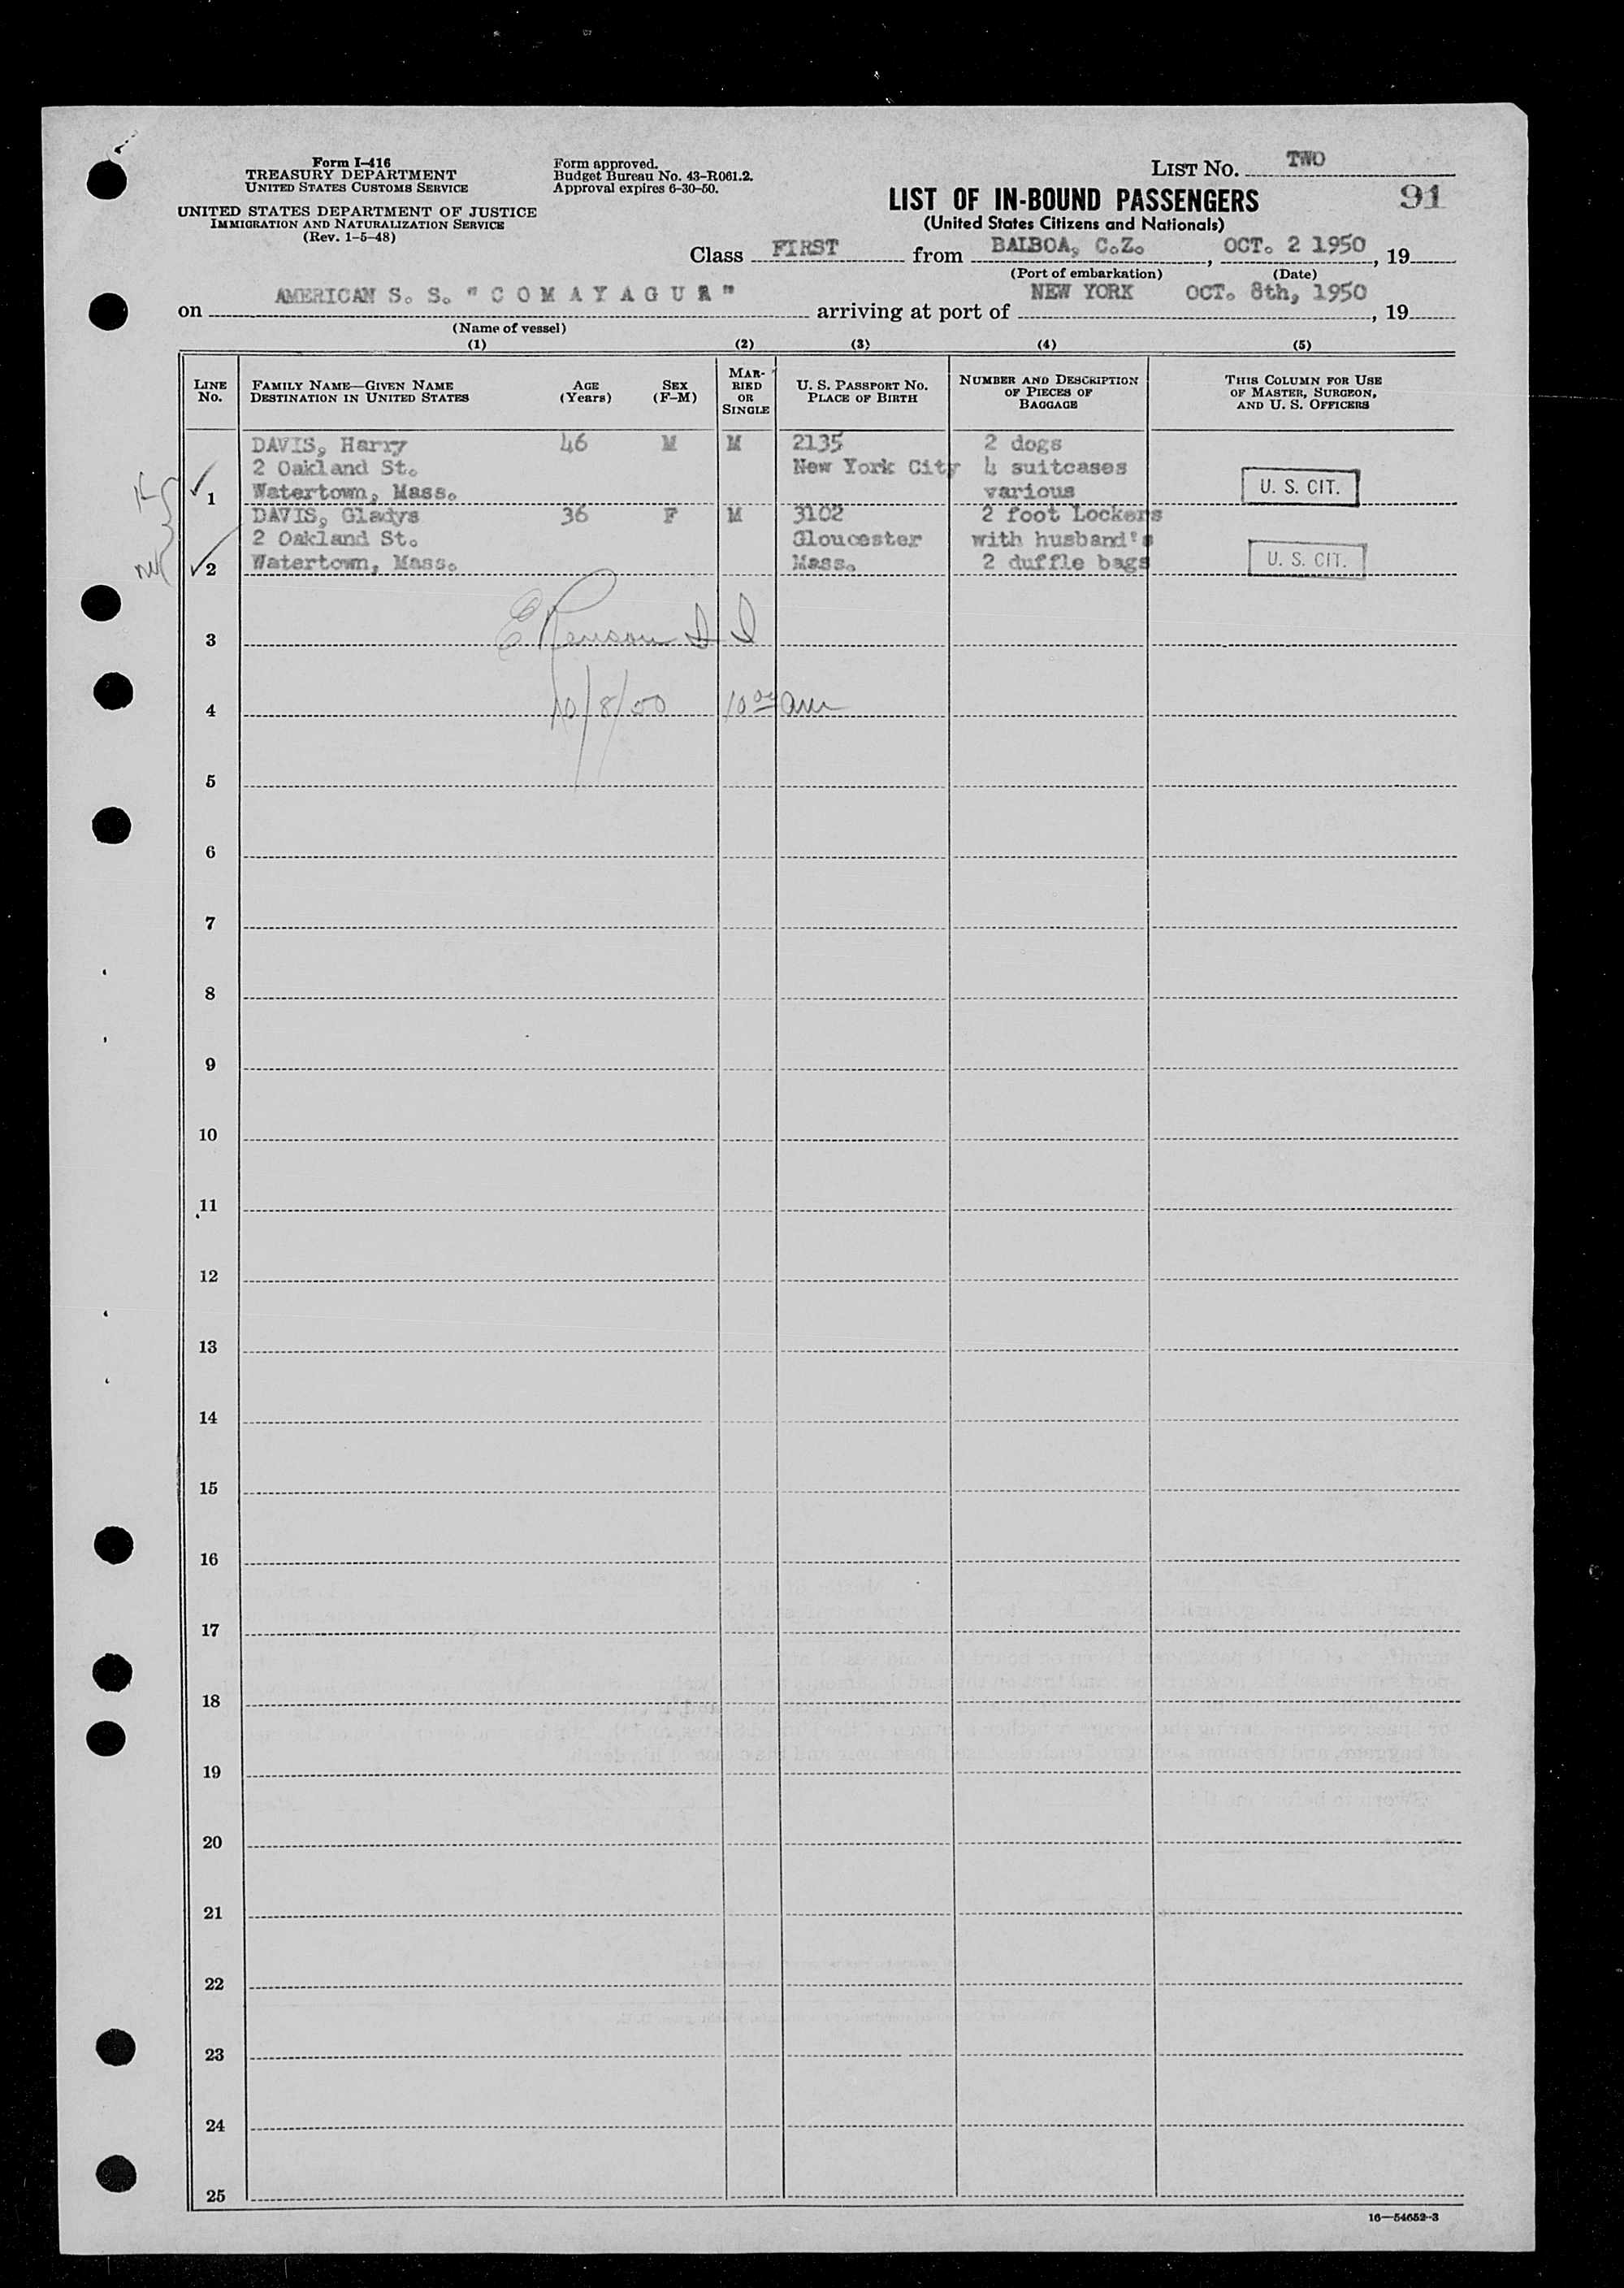 Form I-416
TREASURY DEPARTMENT
UNITED STATES CUSTOMS SERVICE
UNITED STATES DEPARTMENT OF JUSTICE
IMMIGRATION AND NATURALIZATION SERVICE
(Rev. 1-5-48)
Form approved.
Budget Bureau No. 43-R061.2.
Approval expires 6-30-50.
LIST No. TWO
LIST OF IN-BOUND PASSENGERS
91
(United States Citizens and Nationals)
Class FIRST from BALBOA, C.Z., OCT. 2 1950, 19
(Port of embarkation) (Date)
on AMERICAN S. S. "C O M A Y A G U A" arriving at port of NEW YORK OCT. 8th, 1950, 19
(Name of vessel)
(1) (2) (3) (4) (5)
LINE No.
FAMILY NAME—GIVEN NAME
DESTINATION IN UNITED STATES
AGE (Years)
SEX (F-M)
MARRIED OR SINGLE
U. S. PASSPORT NO.
PLACE OF BIRTH
NUMBER AND DESCRIPTION OF PIECES OF BAGGAGE
THIS COLUMN FOR USE OF MASTER, SURGEON, AND U. S. OFFICERS
DAVIS, Harry 46 M M 2135 2 dogs
2 Oakland St. New York City 4 suitcases
1 Watertown, Mass. various U. S. CIT.
DAVIS, Gladys 36 F M 3102 2 foot Lockers
2 Oakland St. Gloucester with husband's
2 Watertown, Mass. Mass. 2 duffle bags U. S. CIT.
3
4 10/8/50 10 00 am
5
6
7
8
9
10
11
12
13
14
15
16
17
18
19
20
21
22
23
24
25
16—54652-3